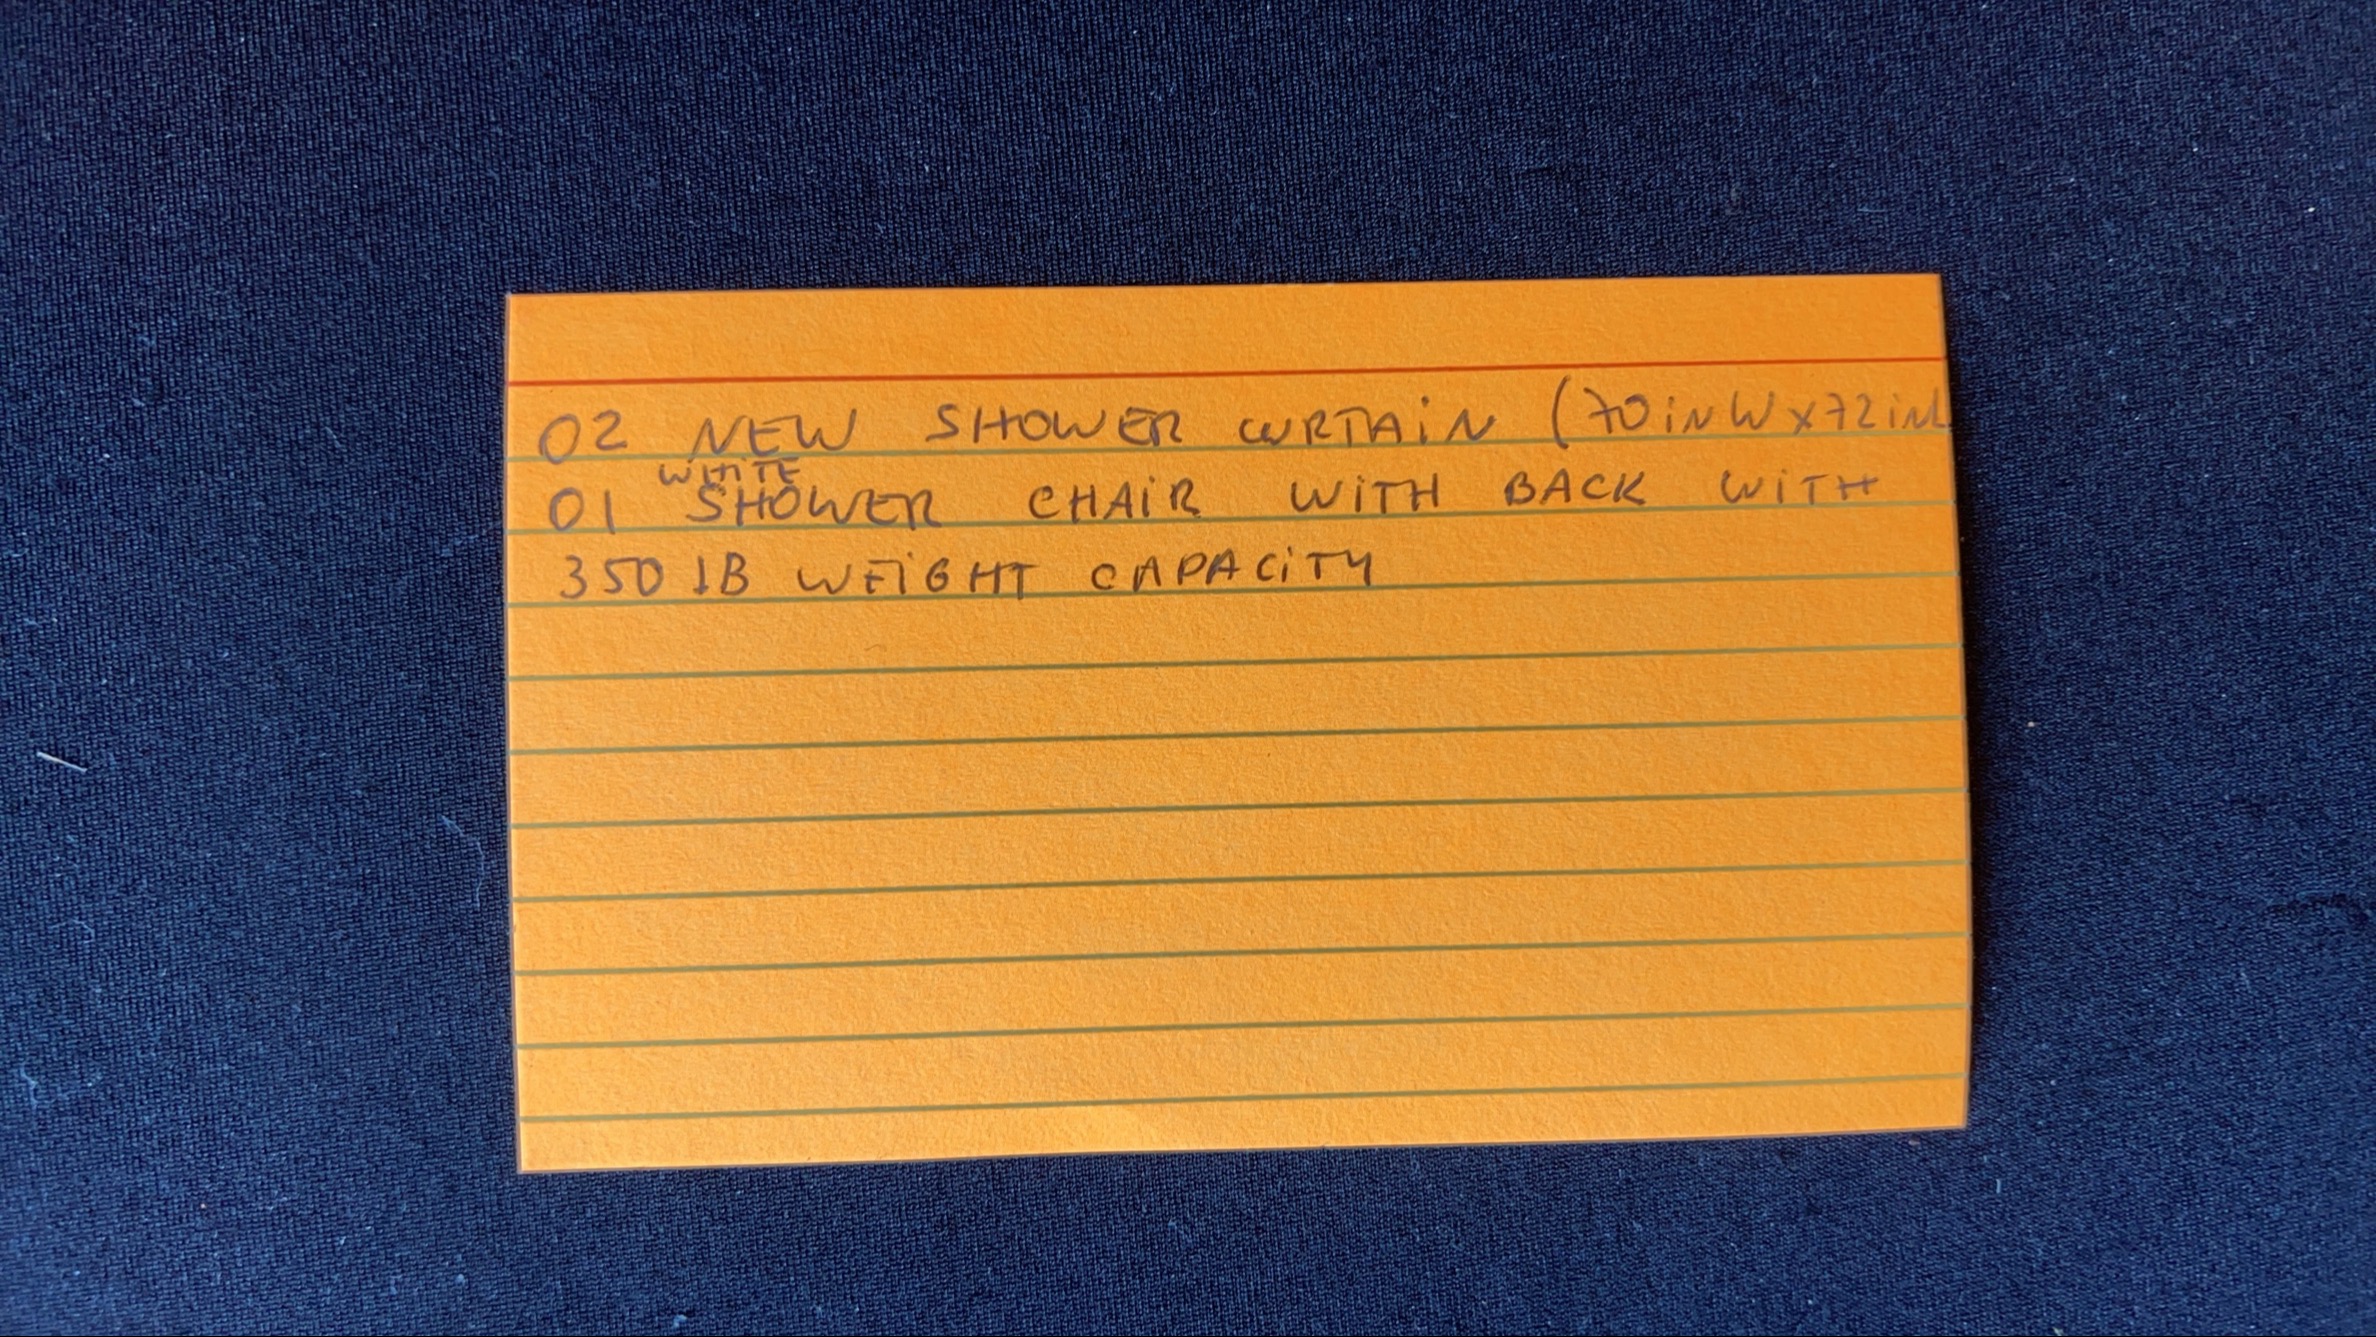 02 NEW SHOWER CURTAIN (70 iN W x 72 iN L
WHiTE
01 SHOWER CHAiR WiTH BACK WiTH
350 lB WEiGHT CAPACiTY